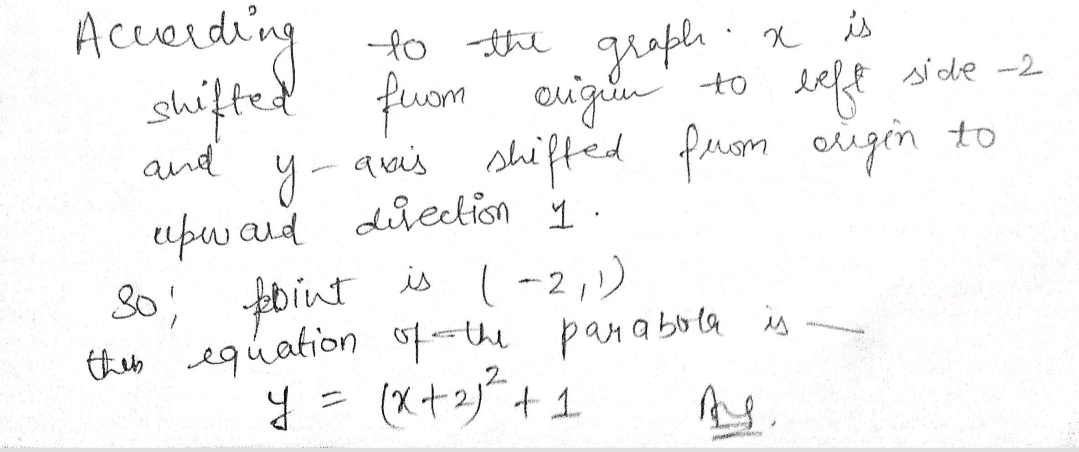 According to the graph. x is
shifted from origin to left side -2
and y-axis shifted from origin to
upward direction 1.
So; point is (-2,1)
then equation of the parabola is —
y = (x+2)² + 1 Ans.